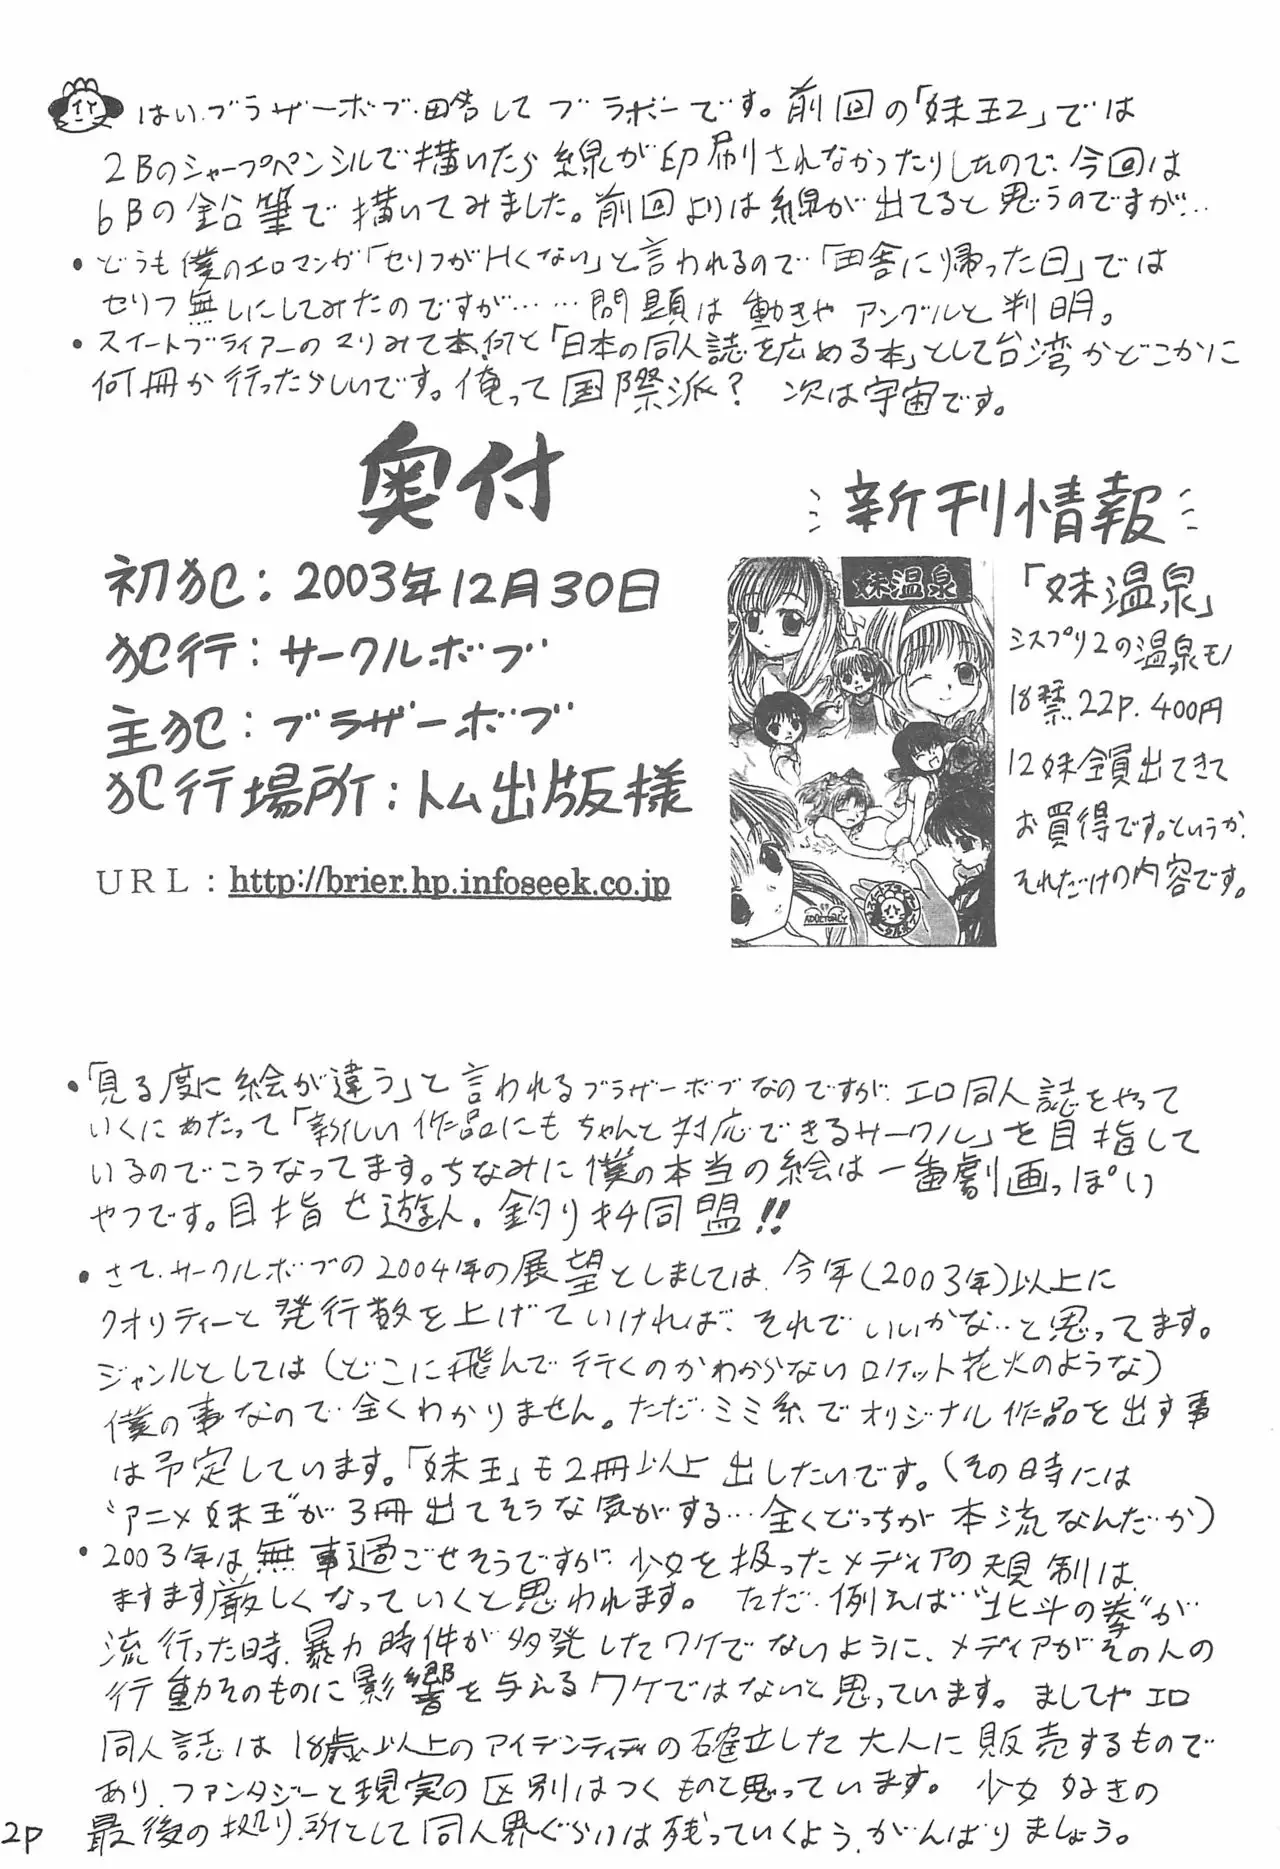 はい、ブラザーボブ田舎してブラボーです。前回の「妹王2」では
2Bのシャープペンシルで描いたら線が印刷されなかったりしたので、今回は
6Bの鉛筆で描いてみました。前回よりは線が出てると思うのですが…
・どうも僕のエロマンガ「セリフがHくない」と言われるので「田舎に帰った日」では
セリフ無しにしてみたのですが……問題は動きやアングルと判明。
・スイートブライアーのマリみて本、何と「日本の同人誌を広める本」として台湾かどこかに
何冊か行ったらしいです。俺って国際派? 次は宇宙です。
奥付
初犯:2003年12月30日
犯行:サークルボブ
主犯:ブラザーボブ
犯行場所:トム出版様
URL:http://brier.hp.infoseek.co.jp
新刊情報
妹温泉
「妹温泉」
シスプリ2の温泉モノ
18禁.22P.400円
12妹全員出てきて
お買得です。というか、
それだけの内容です。
・「見る度に絵が違う」と言われるブラザーボブなのですが、エロ同人誌をやって
いくにあたって「新しい作品にもちゃんと対応できるサークル」を目指して
いるのでこうなってます。ちなみに僕の本当の絵は一番劇画っぽい
やつです。目指せ遊人。釣りキチ同盟!!
・さて、サークルボブの2004年の展望としましては、今年(2003年)以上に
クオリティーと発行数を上げていければ、それでいいかな…と思ってます。
ジャンルとしては(どこに飛んで行くのかわからないロケット花火のような)
僕の事なので全くわかりません。ただ、ミミ糸でオリジナル作品を出す事
は予定しています。「妹王」も2冊以上出したいです。(その時には
"アニメ妹王"が3冊出てそうな気がする…全くどっちが本流なんだか)
・2003年は無事過ごせそうですが、少女を扱ったメディアの規制は
ますます厳しくなっていくと思われます。 ただ、例えば"北斗の拳"が
流行った時、暴力事件が多発したワケでないように、メディアがその人の
行動そのものに影響を与えるワケではないと思っています。ましてやエロ
同人誌は18歳以上のアイデンティティの確立した大人に販売するもので
あり、ファンタジーと現実の区別はつくものと思っています。少女好きの
最後の拠り所として同人界ぐらいは残っていくよう、がんばりましょう。
2P